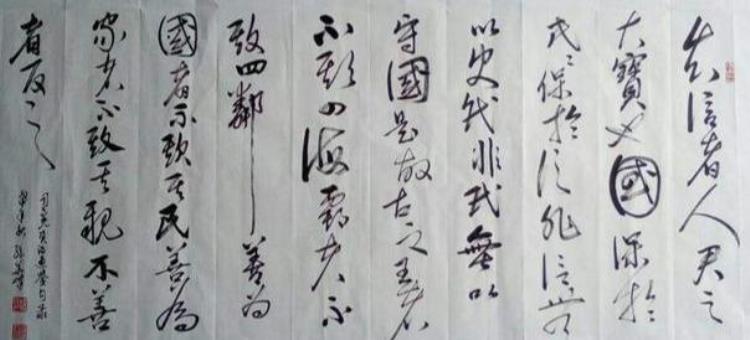 夫信者人君之
大寶也國保於
民〻保於信非信無
以使民非民無以
守國是故古之王者
不欺四海霸者不
欺四鄰善為
國者不欺其民善為
家者不欺其親不善
者反之